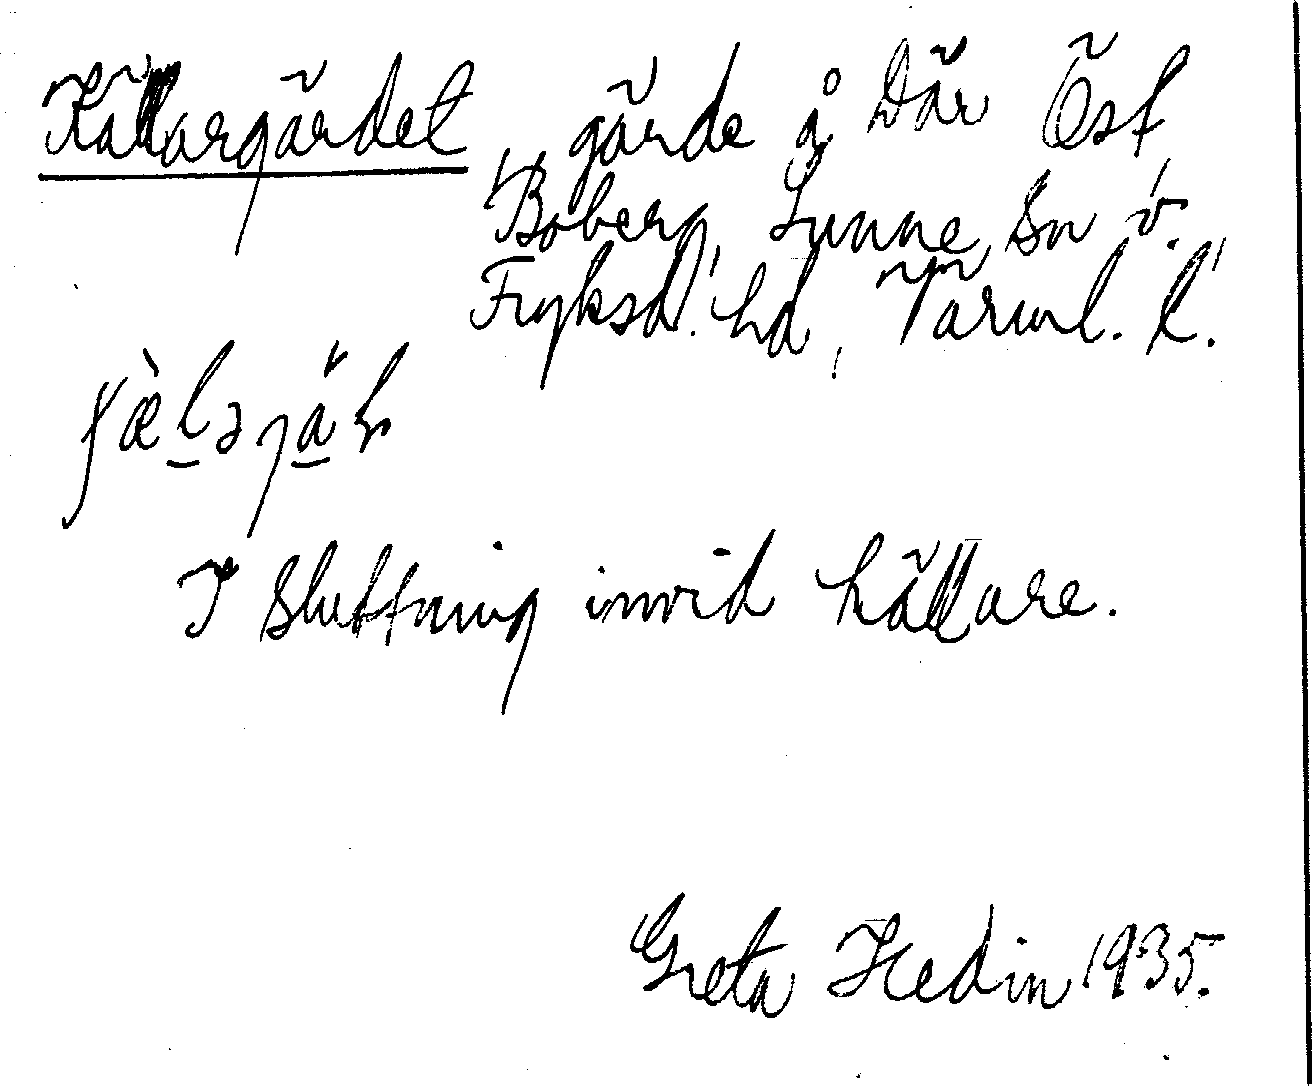 Källargärdet, gärde å Där Öst
Boberg, Sunne sn Ö.
Fryksd. hd, Värml. l.
I sluttning invid källare.
Greta Hedin 1935.